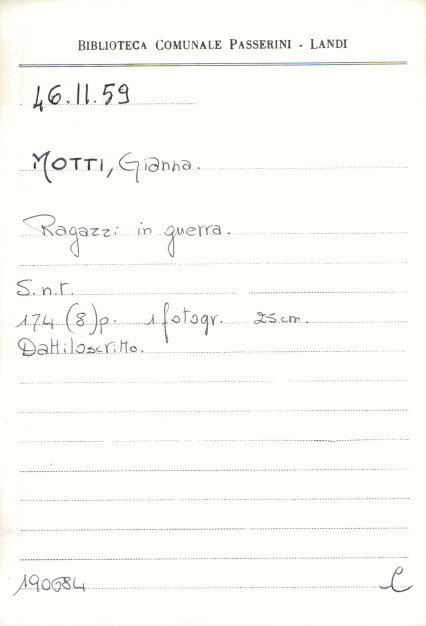 BIBLIOTECA COMUNALE PASSERINI - LANDI
46.II.59
MOTTI, Gianna.
Ragazzi in guerra.
S.n.t.
174 (8)p. 1 fotogr. 25 cm.
Dattiloscritto.
190684
C